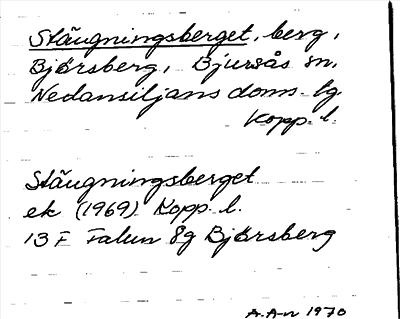 Stäugningsberget, berg,
Björsberg, Bjursås sn,
Nedansiljans doms. lg.
Kopp. l.
Stäugningsberget
ek (1969) Kopp. l.
13 F Falun 8g Björsberg
A.A-n 1970